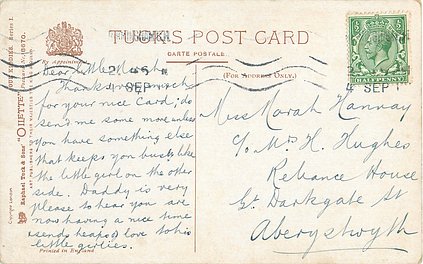 TUCK'S POST CARD
CARTE POSTALE
(For Address Only.)
Raphael Tuck & Sons' "OILETTE"
HALFPENNY
SEP
4 SEP
Dear little
Thanks very much
for your nice Card; do
send me some more unless
you have something else
that keeps you busy like
the little girl on the other
side. Daddy is very
please to hear you are
now having a nice time
sends heaps of love to his
little girlies.
Miss Norah Hannay
c/o Mrs H. Hughes
Reliance House
Gt. Darkgate St
Aberystwyth
Printed in England